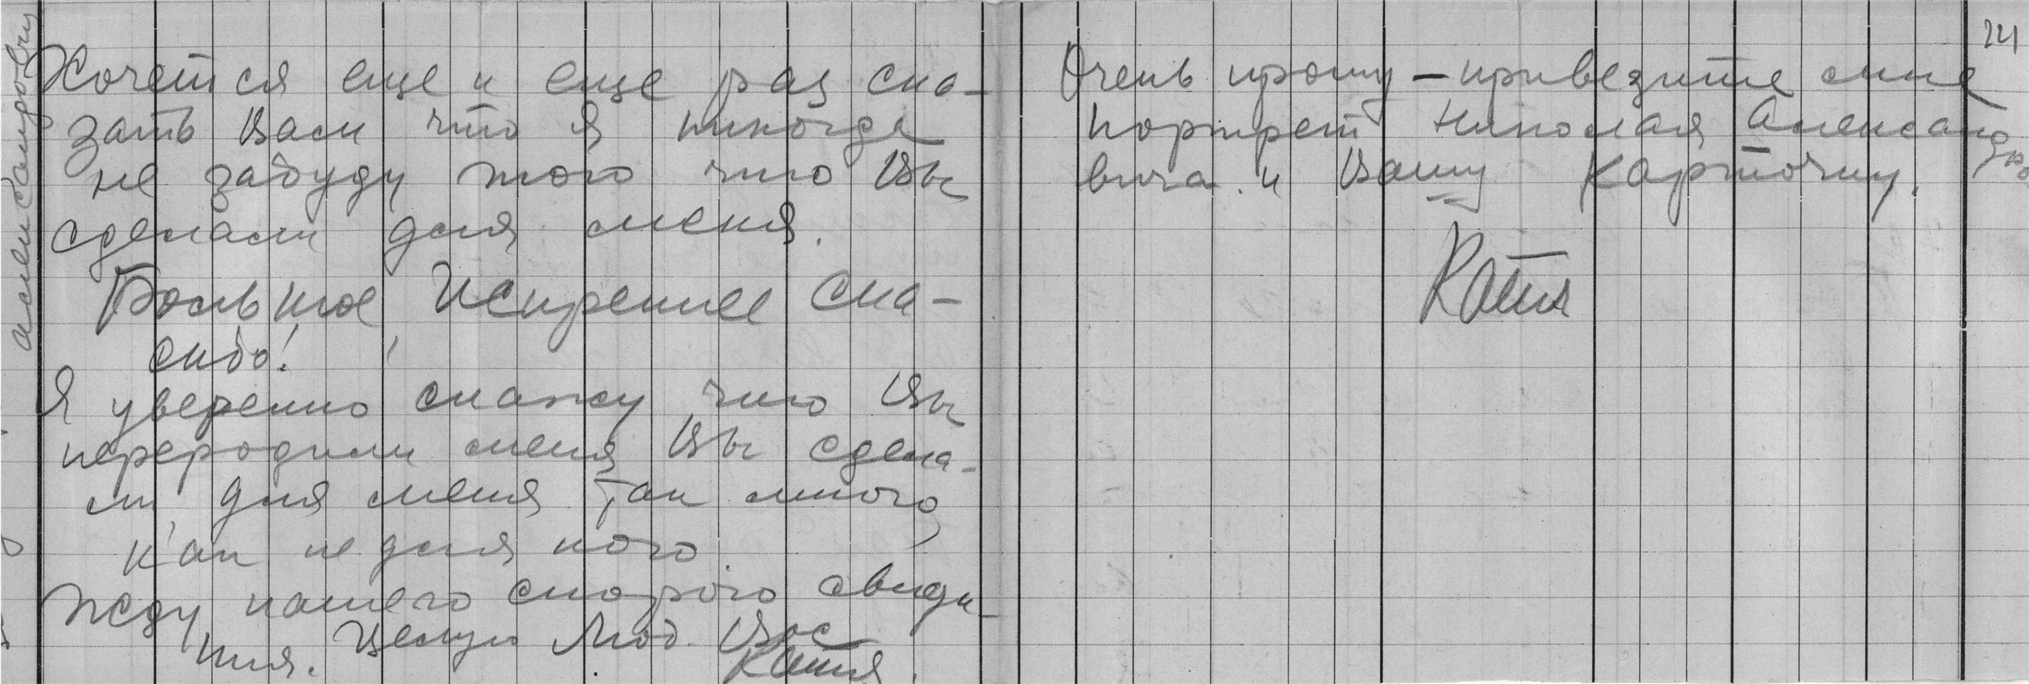 Хочется еще и еще раз ска-
зать Вам что я никогда
не забуду того что Вы
сделали для меня.
Большое Искреннее спа-
сибо!
Я уверенно скажу что Вы
переродили меня Вы сдела-
ли для меня так много,
как не для кого
Жду нашего скорого свиди-
ния. Целую Люб. Вас
Катя.
Очень прошу – привезите мне
портрет Николая Александро
вича и Вашу карточку.
Катя